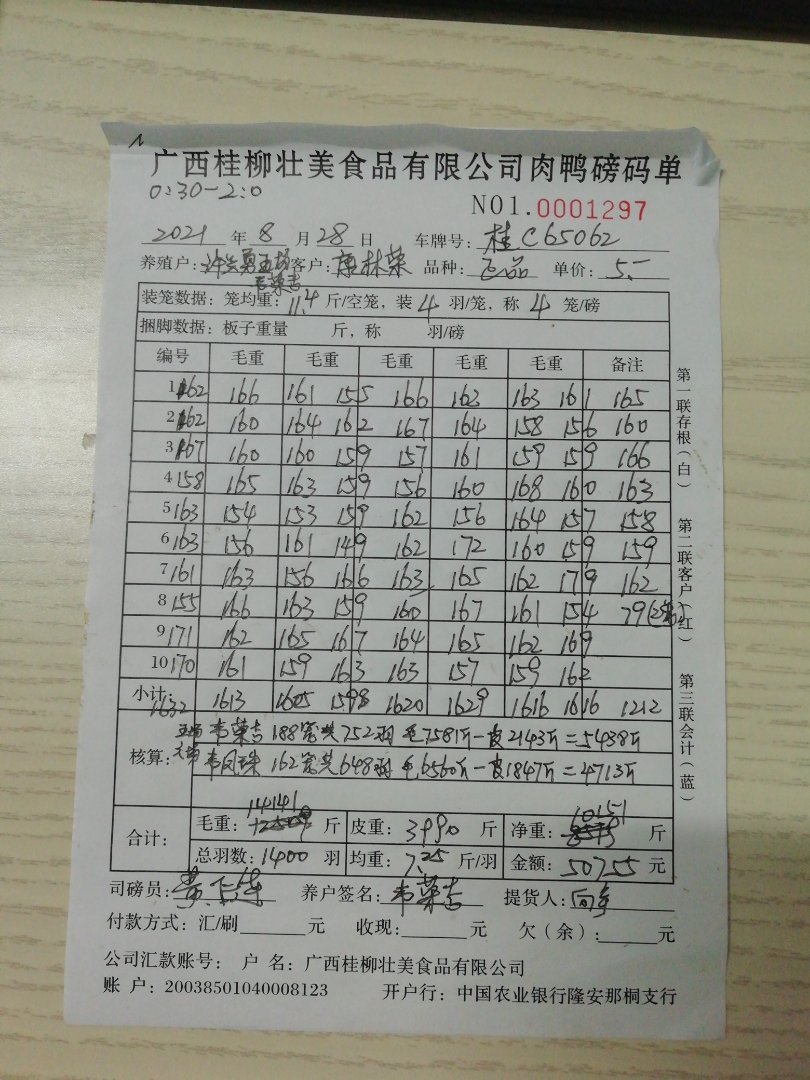 广西桂柳壮美食品有限公司肉鸭磅码单
0:30-2:0
NO1.0001297
2021 年 8 月 28 日 车牌号: 桂C65062
养殖户: 客户: 康林荣 品种: 正品 单价: 5.-
韦荣吉
装笼数据: 笼均重: 11.4 斤/空笼, 装 4 羽/笼, 称 4 笼/磅
捆脚数据: 板子重量 斤, 称 羽/磅
编号 毛重 毛重 毛重 毛重 毛重 备注
1 162 166 161 155 166 163 163 161 165
2 162 160 164 162 167 164 158 156 160
3 167 160 160 159 157 161 159 159 166
4 158 165 163 159 156 160 168 160 163
5 163 154 153 159 162 156 164 157 158
6 163 156 161 149 162 172 160 159 159
7 161 163 156 166 163 165 162 179 162
8 155 166 163 159 160 167 161 154 79
9 171 162 165 167 164 165 162 169
10 170 161 159 163 163 157 159 162
小计: 1632 1613 1605 1598 1620 1629 1616 1616 1212
韦荣吉 188笼共752羽 毛7581斤-皮2143斤=5438斤
核算: 韦凤珠 162笼共648羽 毛6560斤-皮1847斤=4713斤
合计: 毛重: 14141 斤 皮重: 3990 斤 净重: 10151 斤
总羽数: 1400 羽 均重: 7.25 斤/羽 金额: 50755 元
司磅员: 养户签名: 韦荣吉 提货人:
付款方式: 汇/刷 元 收现: 元 欠(余): 元
公司汇款账号: 户 名: 广西桂柳壮美食品有限公司
账 户: 20038501040008123 开户行: 中国农业银行隆安那桐支行
第一联存根(白)
第二联客户(红)
第三联会计(蓝)